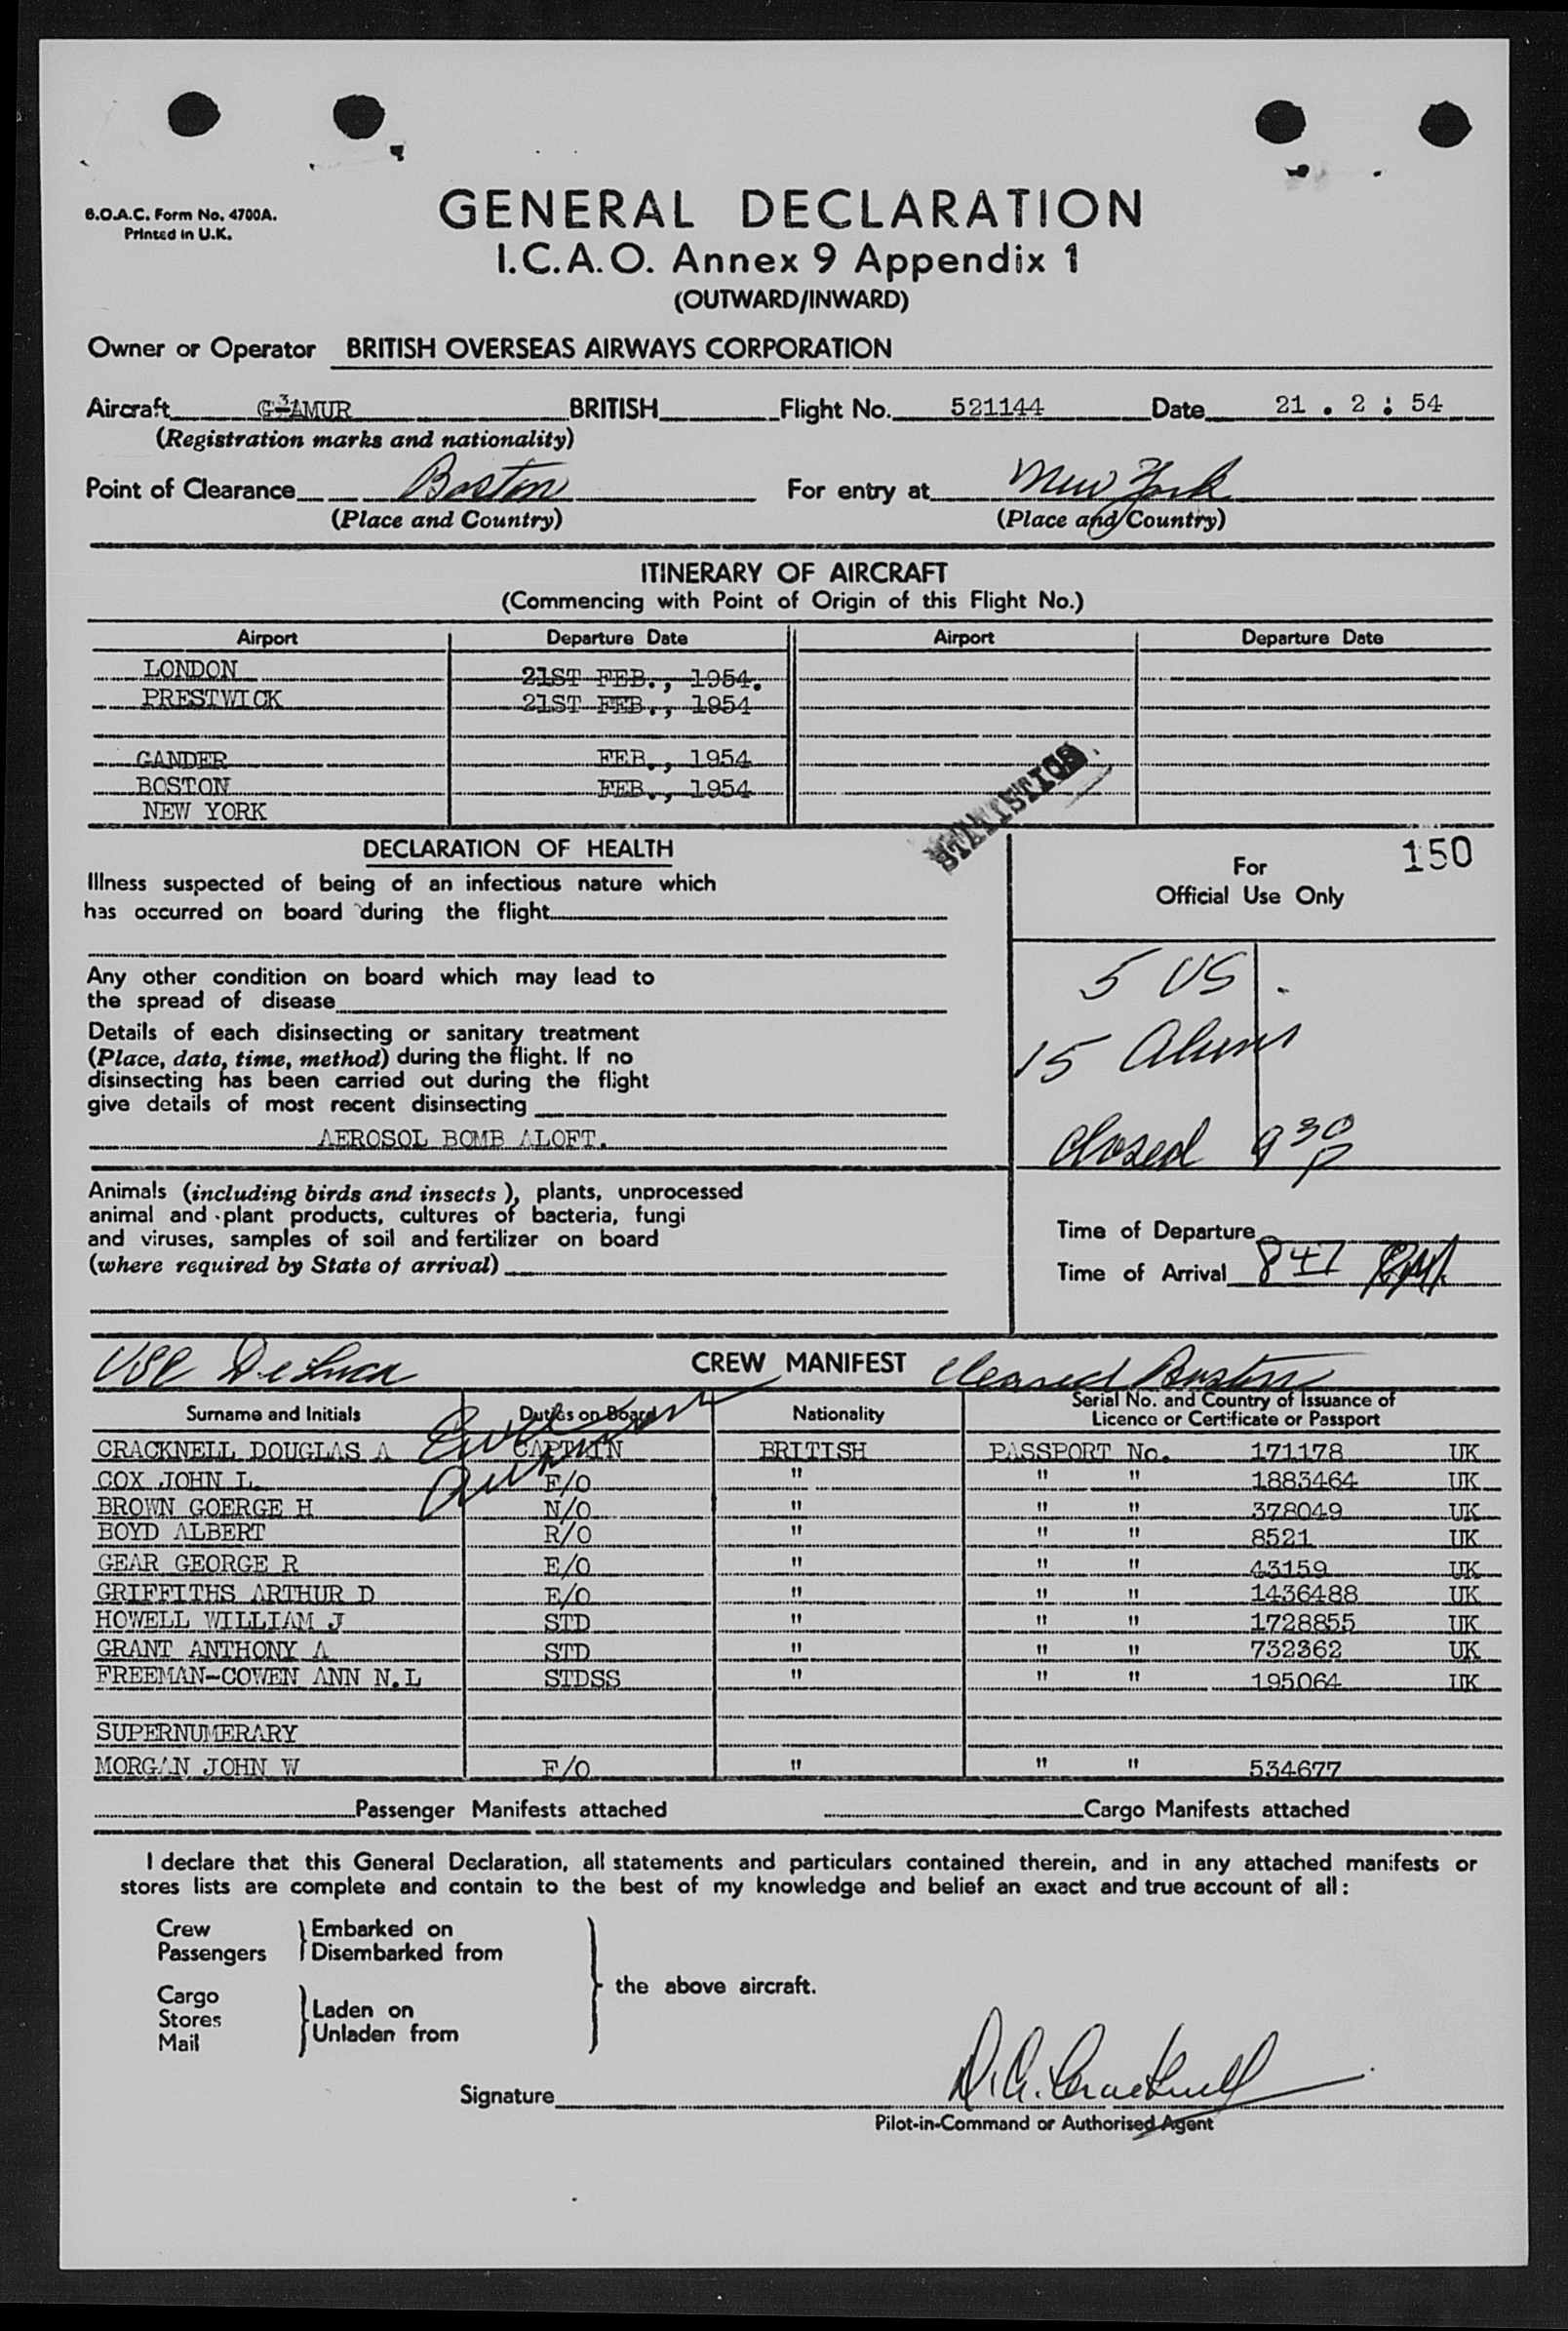 B.O.A.C. Form No. 4700A.
Printed in U.K.
GENERAL DECLARATION
I.C.A.O. Annex 9 Appendix 1
(OUTWARD/INWARD)
Owner or Operator BRITISH OVERSEAS AIRWAYS CORPORATION
Aircraft G-AMUR BRITISH Flight No. 521144 Date 21 . 2 : 54
(Registration marks and nationality)
Point of Clearance Boston For entry at New York
(Place and Country) (Place and Country)
ITINERARY OF AIRCRAFT
(Commencing with Point of Origin of this Flight No.)
Airport Departure Date Airport Departure Date
LONDON 21ST FEB., 1954.
PRESTWICK 21ST FEB., 1954
GANDER FEB., 1954
BOSTON FEB., 1954
NEW YORK
STATISTICS
DECLARATION OF HEALTH
Illness suspected of being of an infectious nature which
has occurred on board during the flight
Any other condition on board which may lead to
the spread of disease
Details of each disinsecting or sanitary treatment
(Place, date, time, method) during the flight. If no
disinsecting has been carried out during the flight
give details of most recent disinsecting
AEROSOL BOMB ALOFT.
Animals (including birds and insects), plants, unprocessed
animal and plant products, cultures of bacteria, fungi
and viruses, samples of soil and fertilizer on board
(where required by State of arrival)
150
For
Official Use Only
5 US
15 Aliens
Closed 9 30 P
Time of Departure
Time of Arrival 847 PM
USC DeLuca CREW MANIFEST Cleared Boston
Surname and Initials Duties on Board Nationality Serial No. and Country of Issuance of
Licence or Certificate or Passport
CRACKNELL DOUGLAS A CAPTAIN BRITISH PASSPORT No. 171178 UK
COX JOHN L. F/O " " " 1883464 UK
BROWN GOERGE H N/O " " " 378049 UK
BOYD ALBERT R/O " " " 8521 UK
GEAR GEORGE R E/O " " " 43159 UK
GRIFFITHS ARTHUR D E/O " " " 1436488 UK
HOWELL WILLIAM J STD " " " 1728855 UK
GRANT ANTHONY A STD " " " 732362 UK
FREEMAN-COWEN ANN N.L STDSS " " " 195064 UK
SUPERNUMERARY
MORGAN JOHN W F/O " " " 534677
Passenger Manifests attached Cargo Manifests attached
I declare that this General Declaration, all statements and particulars contained therein, and in any attached manifests or
stores lists are complete and contain to the best of my knowledge and belief an exact and true account of all:
Crew
Passengers
Embarked on
Disembarked from
Cargo
Stores
Mail
Laden on
Unladen from
the above aircraft.
Signature D.A. Cracknell
Pilot-in-Command or Authorised Agent